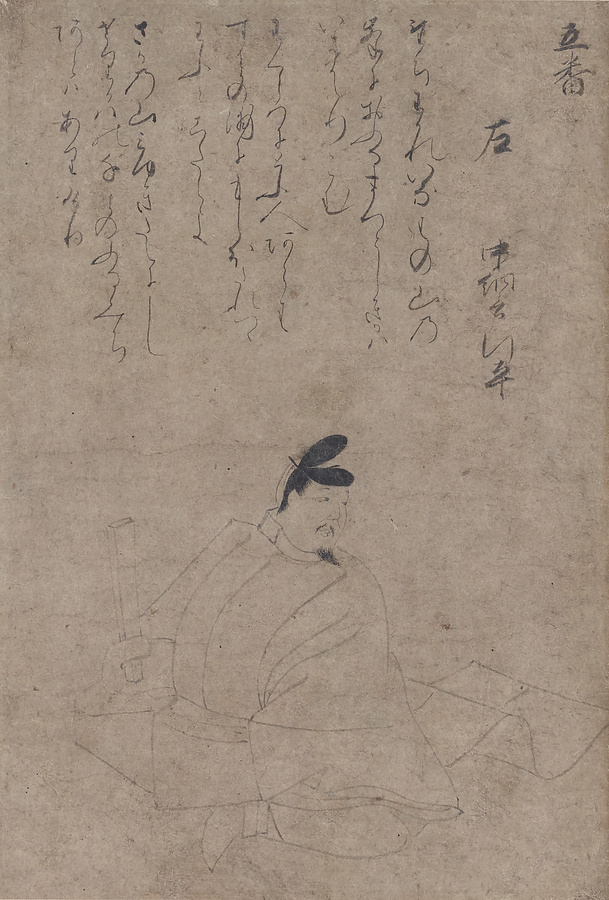 五番
左
中納言行平
たちわかれいなはの山の
峯におふるまつとしきかは
いまかへりこむ
わくらはにとふ人あらは
すまの浦にもしほたれつゝ
わふとこたへよ
さかの山みゆきたえにし
せりかはの千よのふるみち
あとはありけり